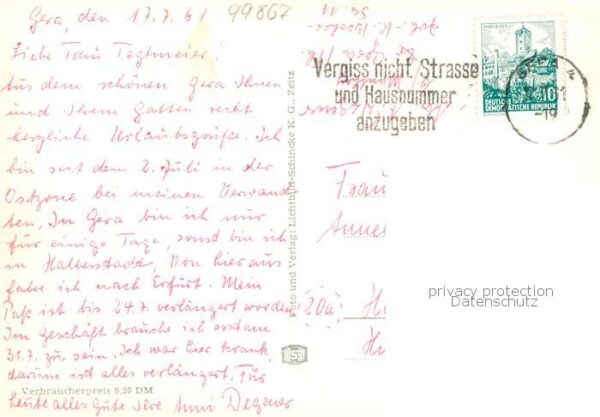 Gera, den 17.7.61
99867
Liebe Frau Tegtmeier!
Aus dem schönen Gera Ihnen
und Ihrem Gatten recht
herzliche Urlaubsgrüße. Ich
bin seit dem 2. Juli in der
Ostzone bei meinen Verwand-
ten. In Gera bin ich nur
für einige Tage, sonst bin ich
in Halberstadt. Von hier aus
fahre ich nach Erfurt. Mein
Paß ist bis 24.7. verlängert worden
Im Geschäft brauche ich erst am
31.7. zu sein. Ich war hier krank,
darum ist alles verlängert. Für
heute alles Gute Ihre Anni Degener
Verbraucherpreis 0,20 DM
Foto und Verlag: Lichtbild-Schincke K. G. Zeitz
Vergiss nicht, Strasse
und Hausnummer
anzugeben
DEUTSCHE
DEMOKRATISCHE REPUBLIK
10
-19
Frau
Annes
20a
H
H
privacy protection
Datenschutz